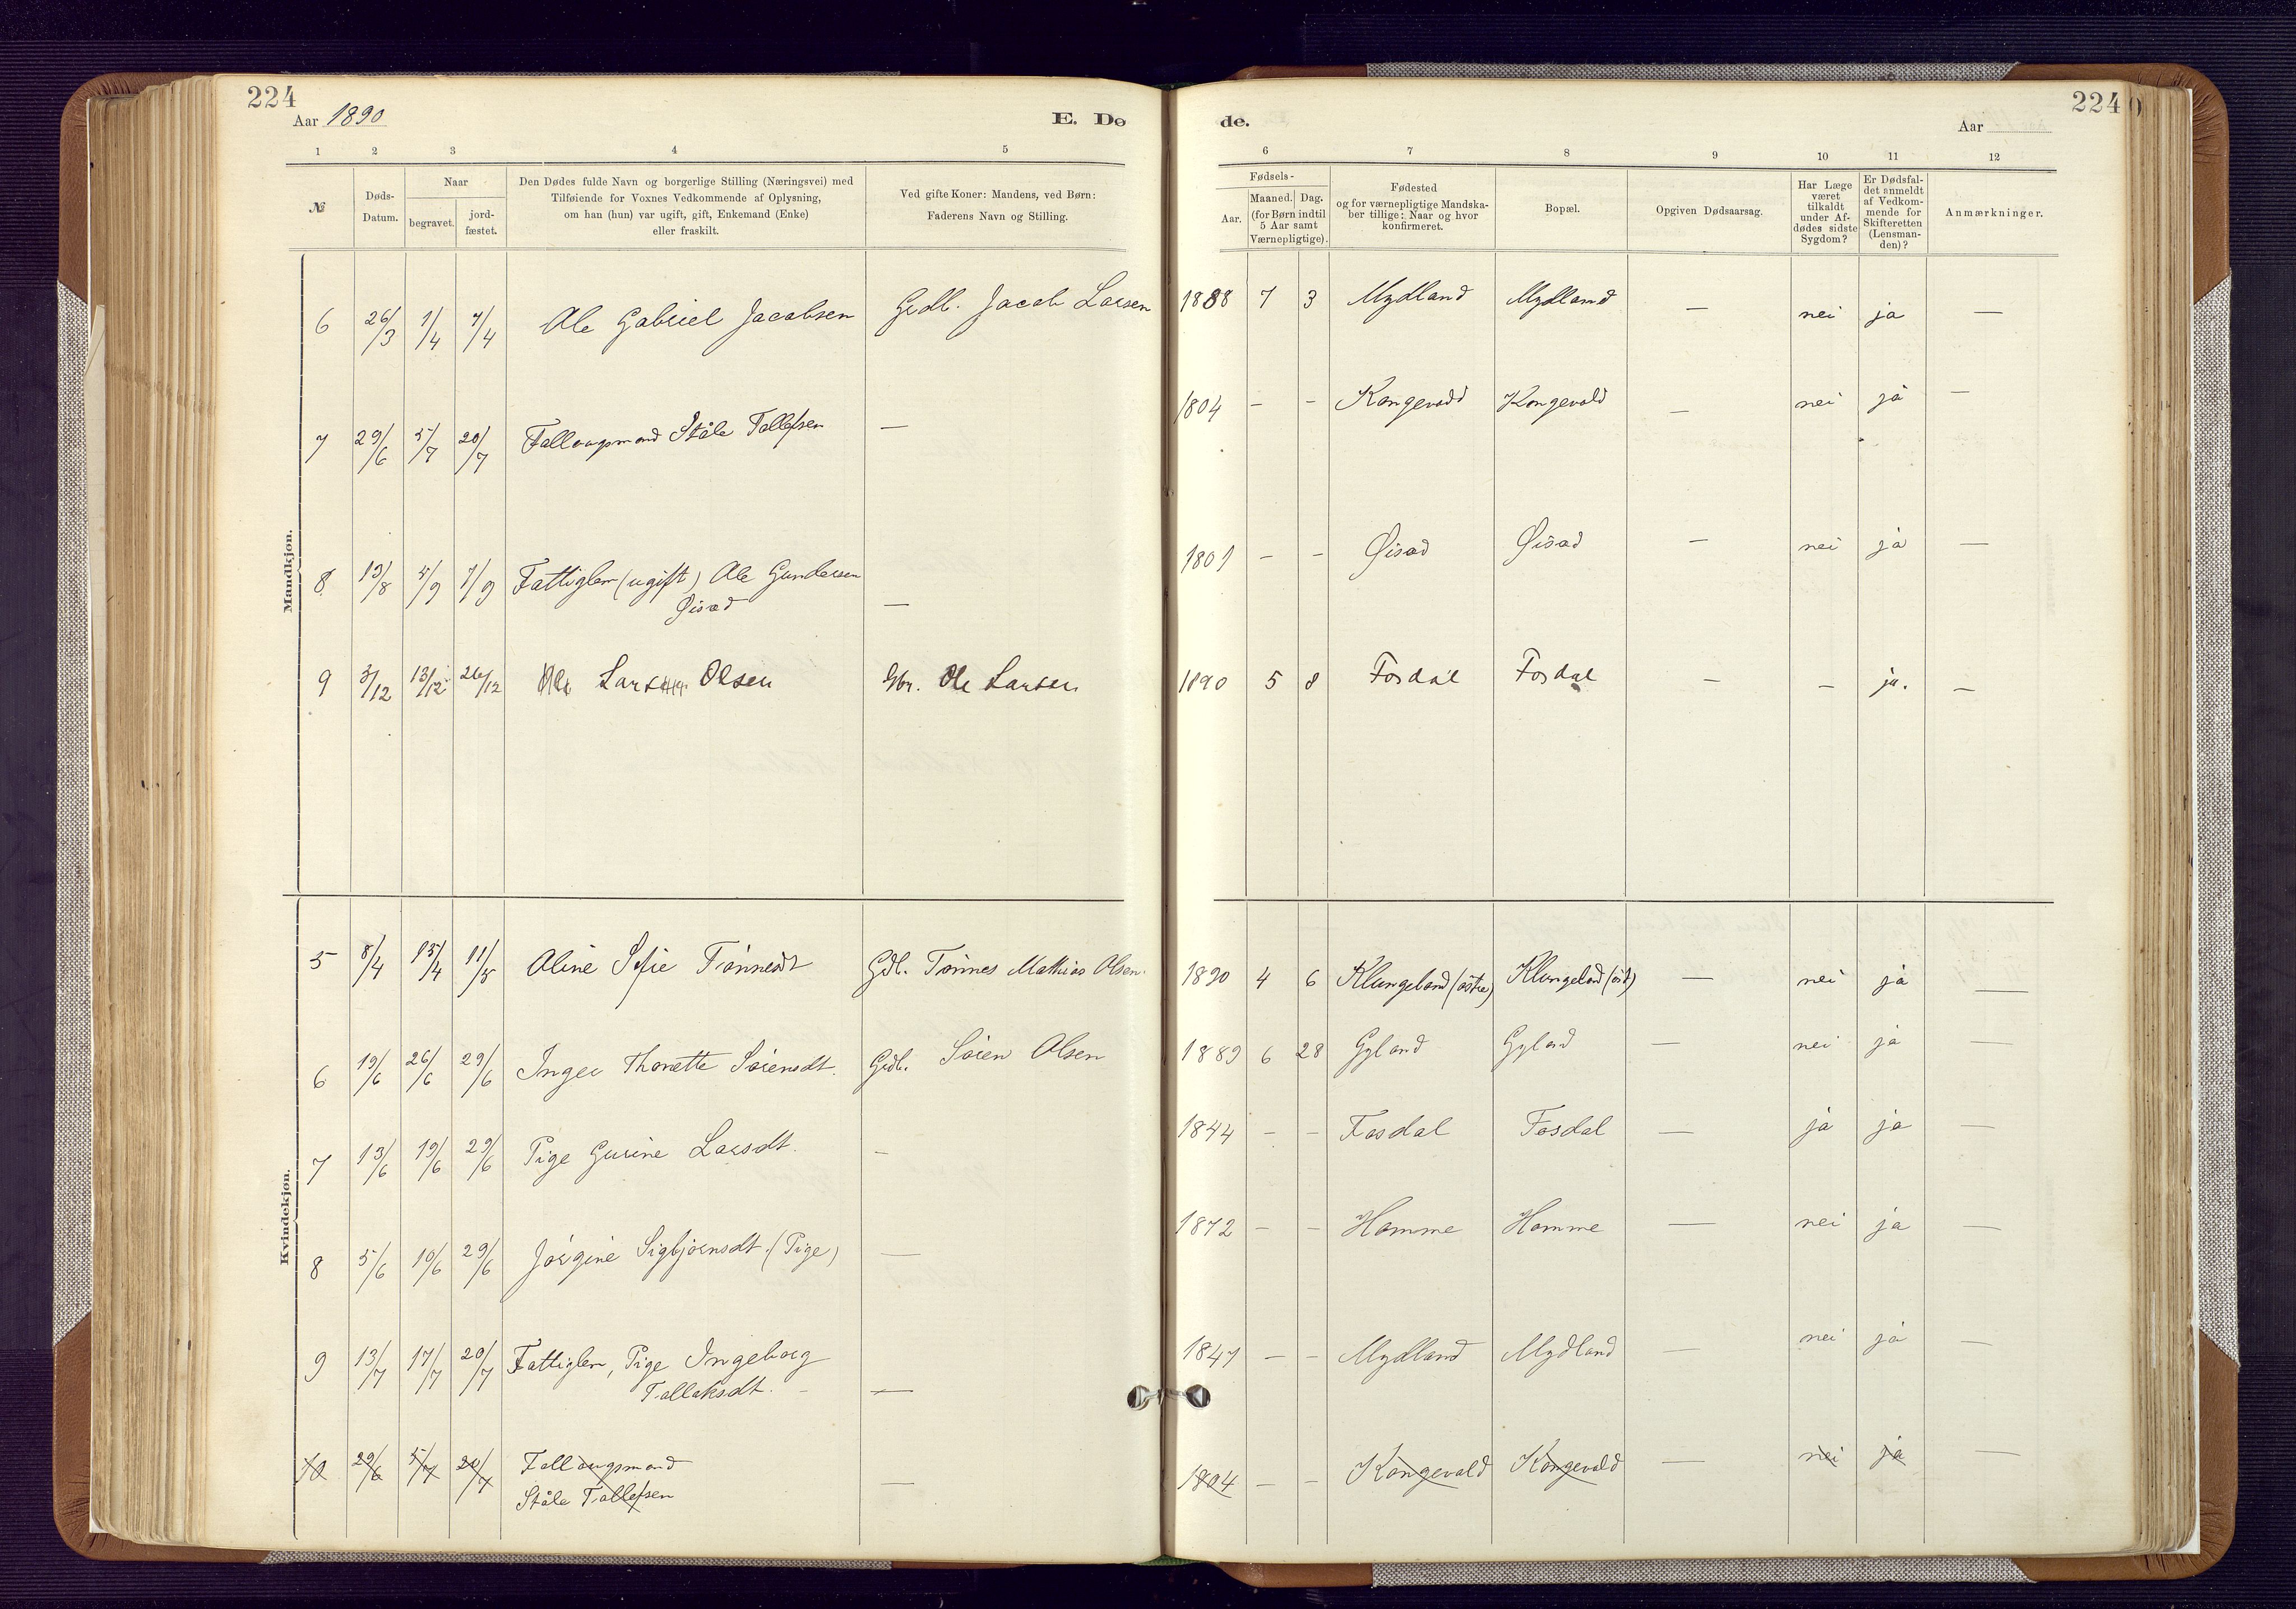 224
Aar 1890
E. Dø
de.
224
Aar
1 2 3 4 5 6 7 8 9 10 11 12
№
Døds-
Datum.
Naar
begravet.
jord-
fæstet.
Den Dødes fulde Navn og borgerlige Stilling (Næringsvei) med
Tilføiende for Voxnes Vedkommende af Oplysning,
om han (hun) var ugift, gift, Enkemand (Enke)
eller fraskilt.
Ved gifte Koner: Mandens, ved Børn:
Faderens Navn og Stilling.
Fødsels-
Aar.
Maaned. Dag.
(for Børn indtil
5 Aar samt
Værnepligtige).
Fødested
og for værnepligtige Mandska-
ber tillige: Naar og hvor
konfirmeret.
Bopæl.
Opgiven Dødsaarsag.
Har Læge
været
tilkaldt
under Af-
dødes sidste
Sygdom?
Er Dødsfal-
det anmeldt
af Vedkom-
mende for
Skifteretten
(Lensman-
den)?
Anmærkninger.
Mandkjøn.
6 26/3 1/4 7/4 Ole Gabriel Jacobsen Grdb. Jacob Larsen 1888 7 3 Mydland Mydland — nei ja —
7 29/6 5/7 20/7 Føllaugsmand Ståle Tollefsen — 1804 - - Kongevold Kongevold — nei ja —
8 19/8 5/9 7/9 Fattiglem (ugift) Ole Gundersen
Øisæd — 1801 - - Øisæd Øisæd — nei ja —
9 3/12 13/12 26/12 Lars Olsen Gbr. Ole Larsen 1890 5 8 Fosdal Fosdal — — ja. —
Kvindekjøn.
5 8/4 15/4 11/5 Aline Sofie Tønnesdt Gdb. Tønnes Mathias Olsen. 1890 4 6 Klungeland (östre) Klungeland (öst) — nei ja —
6 19/6 26/6 29/6 Inger Thonette Sørensdt. Grdb. Sören Olsen 1889 6 28 Gyland Gyland — nei ja —
7 13/6 19/6 29/6 Pige Gurine Larsdt. - 1844 - - Fosdal Fosdal — ja ja —
8 5/6 10/6 29/6 Jörgine Sigbjørnsdt. (Pige) — 1872 - - Homme Homme — nei ja —
9 13/7 17/7 20/7 Fattiglem, Pige Ingeborg
Tallaksdt. — 1847 - - Mydland Mydland — nei ja —
10 29/6 5/7 20/7 Føllaugsmand
Ståle Tollefsen — 1804 - - Kongevold Kongevold — nei ja —